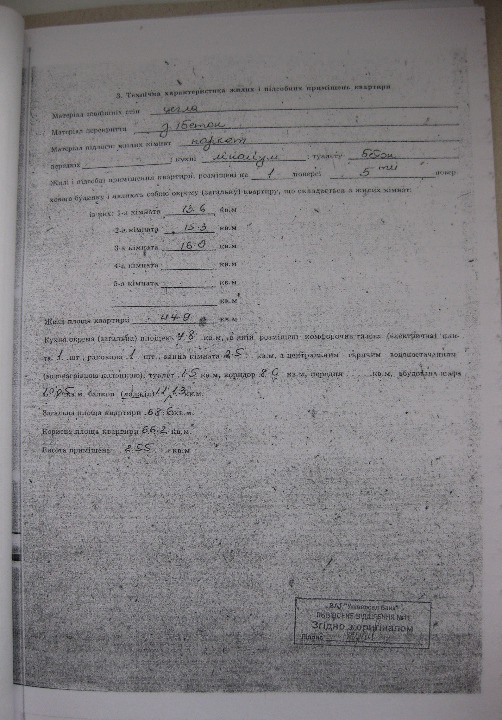 3. Технічна характеристика жилих і підсобних приміщень квартири
Матеріал зовнішніх стін цегла
Матеріал перекриття з/бетон
Матеріал підлоги: жилих кімнат паркет
коридор ; кухні лінолеум ; туалету бетон
Жилі і підсобні приміщення квартири розміщені на 1 поверсі 5 ти повер-
хового будинку і являють собою окрему (загальну) квартиру, що складається з жилих кімнат:
із них: 1-а кімната 13.6 кв.м
2-а кімната 15.3 кв.м
3-а кімната 16.0 кв.м
4-а кімната кв.м
5-а кімната кв.м
кв.м
Жила площа квартири 44.9 кв.м
Кухня окрема (загальна) площею 7.8 кв.м, в якій розміщені комфорочна газова (електрична) пли-
та 1 шт., раковина 1 шт., ванна кімната 2.5 кв.м, з центральним гарячим водопостачанням
туалет 1.5 кв.м, коридор кв.м, передня кв.м, вбудовна шафа
кв.м, балкон (лоджія) кв.м.
Загальна площа квартири 68.6 кв.м.
Корисна площа квартири 66.2 кв.м.
Висота приміщень 2.55 кв.м
ЛЬВІВСЬКЕ ВІДДІЛЕННЯ №1
Згідно з оригіналом
Підпис